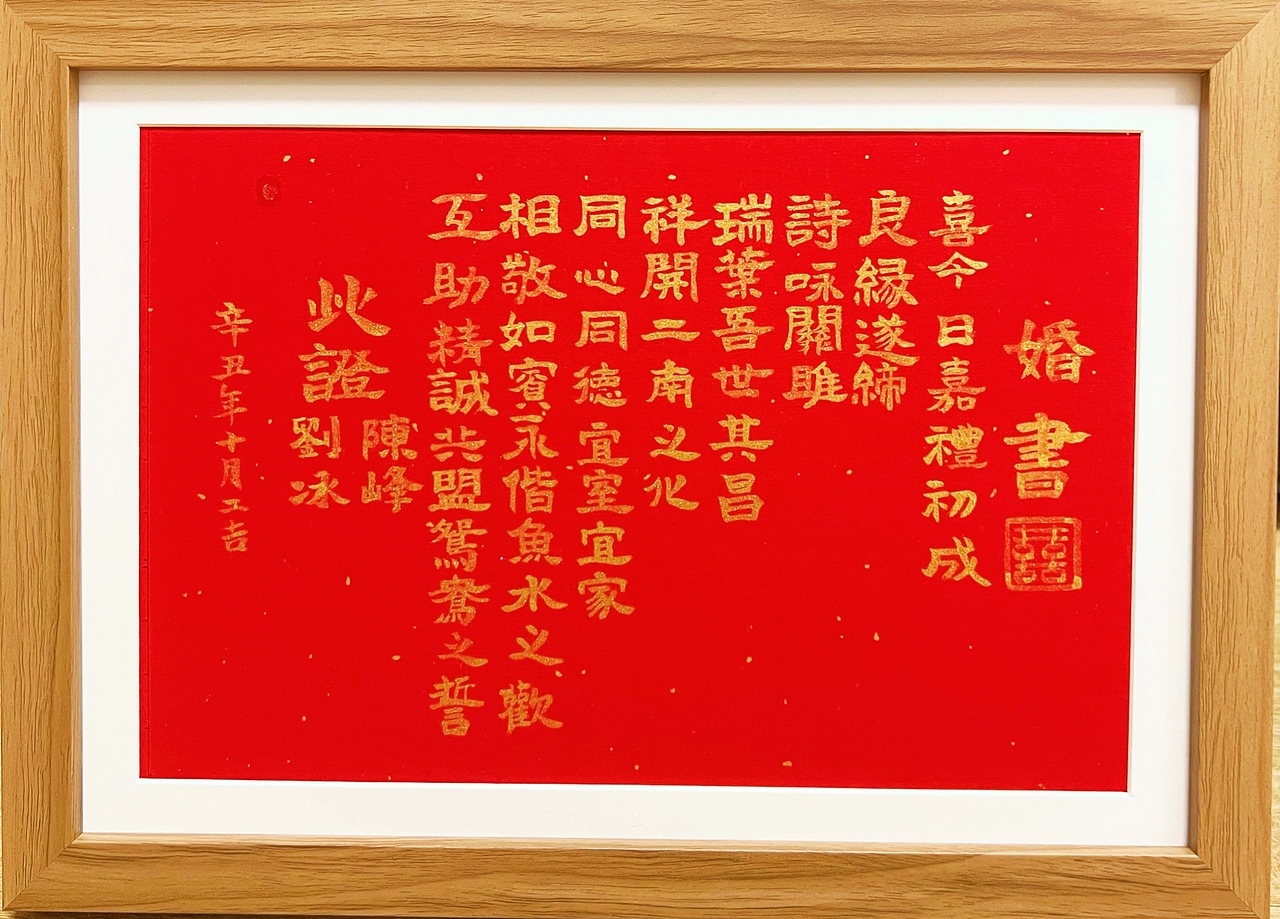 婚書
囍
喜今日嘉禮初成
良緣遂締
詩咏關雎
瑞葉吾世其昌
祥開二南之化
同心同德宜室宜家
相敬如賓永偕魚水之歡
互助精誠共盟鴛鴦之誓
此證
陳峰
劉冰
辛丑年十月工吉